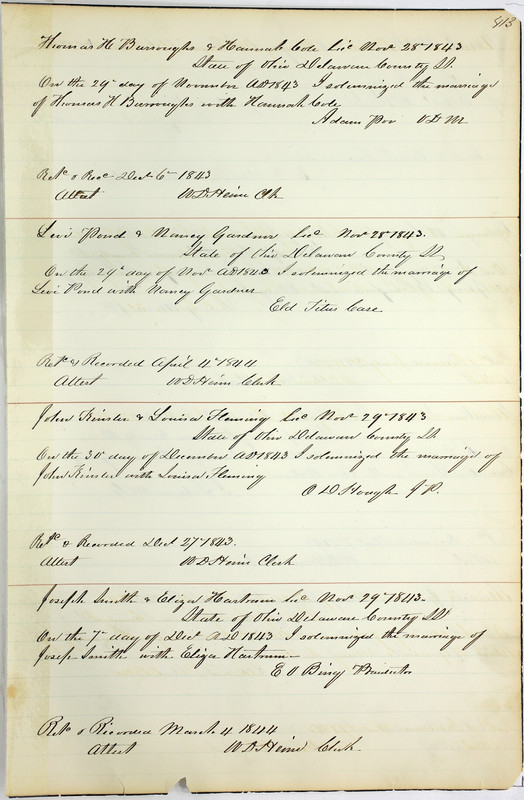 413
Thomas H Burroughs & Hannah Cole Lic Nov 28th 1843
State of Ohio Delaware County SS
On the 29th day of November AD 1843 I solemnized the marriage
of Thomas H Burroughs with Hannah Cole
Adam Poe V D M
Retd & Recd Dec 6th 1843
Attest W D Heim Clk
Levi Pond & Nancy Gardner Lic Nov 28th 1843.
State of Ohio Delaware County SS
On the 29th day of Nov AD 1843 I solemnized the marriage of
Levi Pond with Nancy Gardner
Eld Titus Case
Retd & Recorded April 4th 1844
Attest W D Heim Clerk
John Kinsler & Louisa Fleming Lic Nov 29th 1843
State of Ohio Delaware County SS
On the 30th day of December AD 1843 I solemnized the marriage of
John Kinsler with Louisa Fleming
O D Hough J P.
Retd & Recorded Dec 27th 1843.
Attest W D Heim Clerk
Joseph Smith & Eliza Hartrum Lic Nov 29th 1843-
State of Ohio Delaware County SS
On the 7th day of Dec A D 1843 I solemnized the marriage of
Joseph Smith with Eliza Hartrum
E O
Retd & Recorded March 4 1844
Attest W D Heim Clerk.